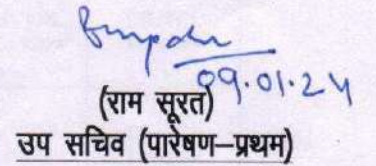 09.01.24
(राम सूरत)
उप सचिव (पारेषण–प्रथम)